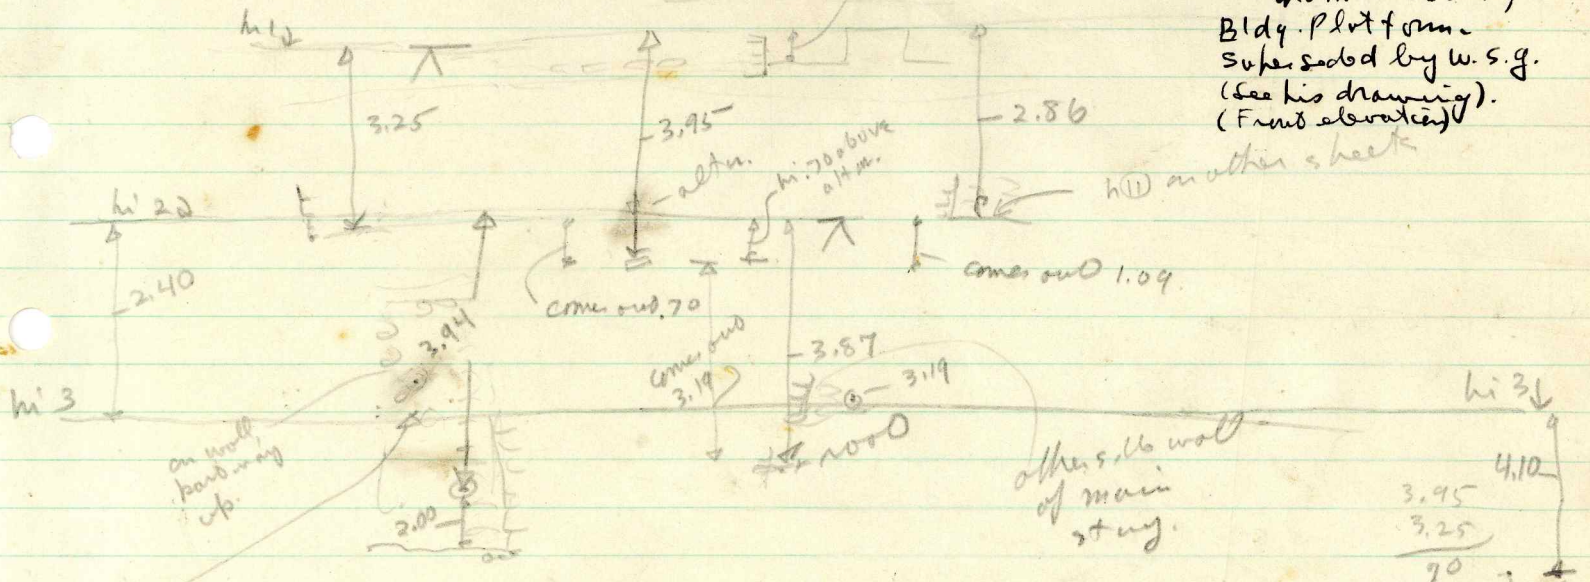 Bldg. Platform.
superseded by W.S.G.
(See his drawing).
(Front elevation)
hi 1
3.25
3.95
2.86
altm.
hi .70 above
altm.
on other sheet
hi 2
2.40
comes out .70
comes out 1.09
3.94
comes out
3.19
3.87
3.19
hi 3
hi 3
on wall
part way
up.
2.00
root
other side wall
of main
stwy.
4.10
3.95
3.25
70